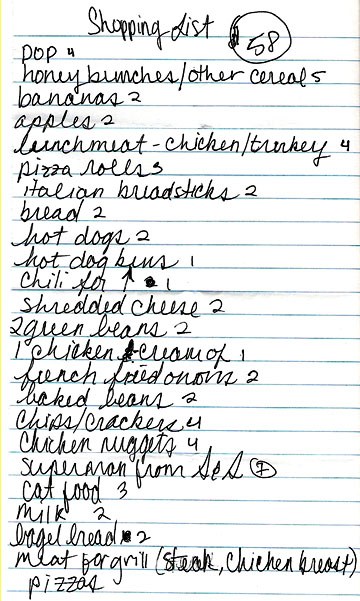 Shopping List 58
pop 4
honey bunches/other cereal 5
bananas 2
apples 2
lunchmeat - chicken/turkey 4
pizza rolls 3
italian breadsticks 2
bread 2
hot dogs 2
hot dog buns 1
chili for ↑ 1
shredded cheese 2
2 green beans 2
1 chicken cream of 1
french fried onions 2
baked beans 2
chips/crackers 4
chicken nuggets 4
superman from S&S 7
cat food 3
milk 2
bagel bread 2
meat for grill (steak, chicken breast)
pizzas